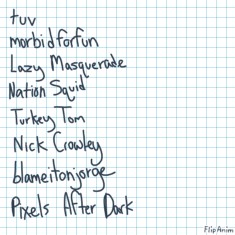 tuv
morbidforfun
Lazy Masquerade
Nation Squid
Turkey Tom
Nick Crowley
blameitonjorge
Pixels After Dark
FlipAnim